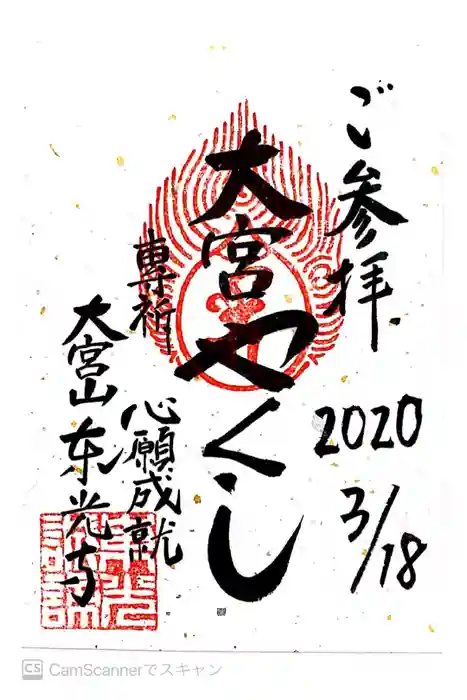 ご参拝
2020
3/18
大宮やくし
專祈
心願成就
大宮山东光寺
CS CamScannerでスキャン